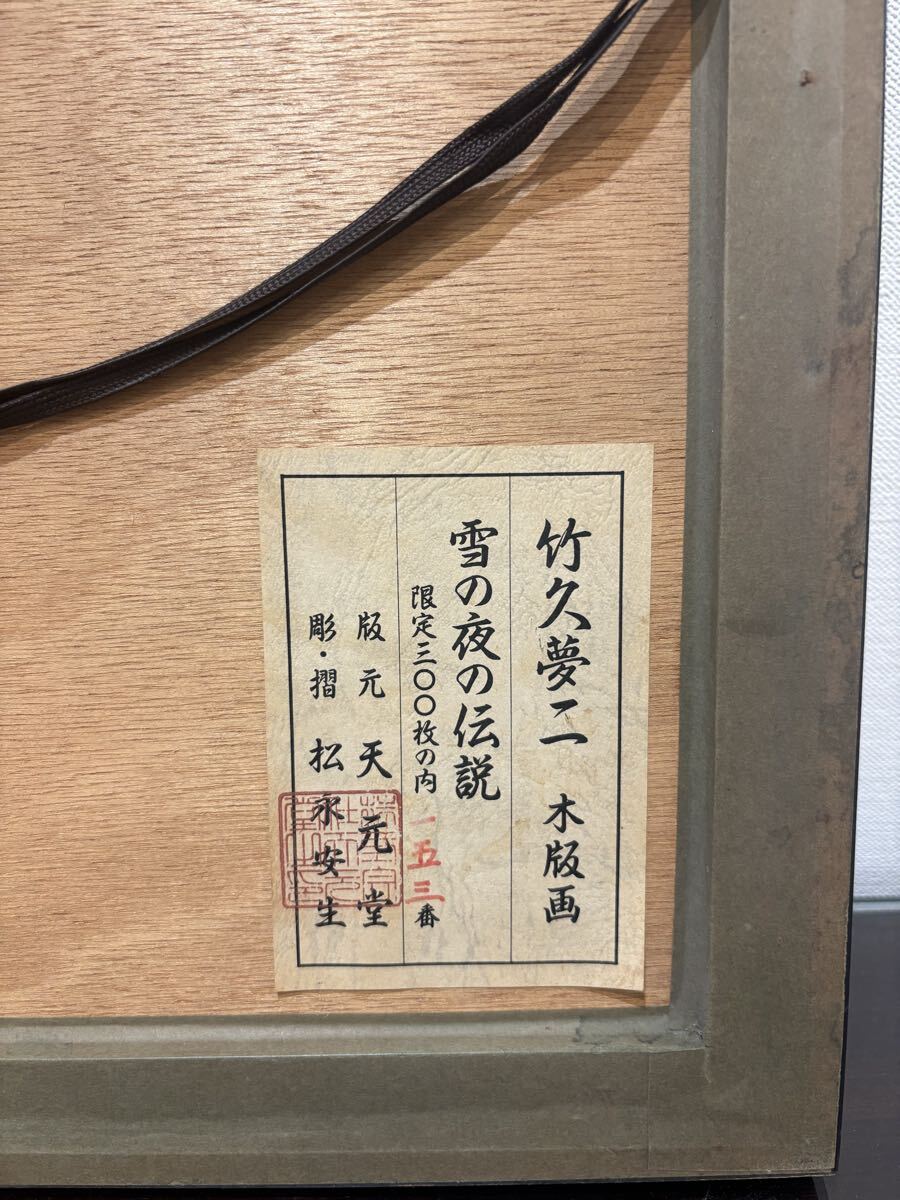 竹久夢二 木版画
雪の夜の伝説
限定三〇〇枚の内 一五三番
版元 天元堂
彫・摺 松永安生